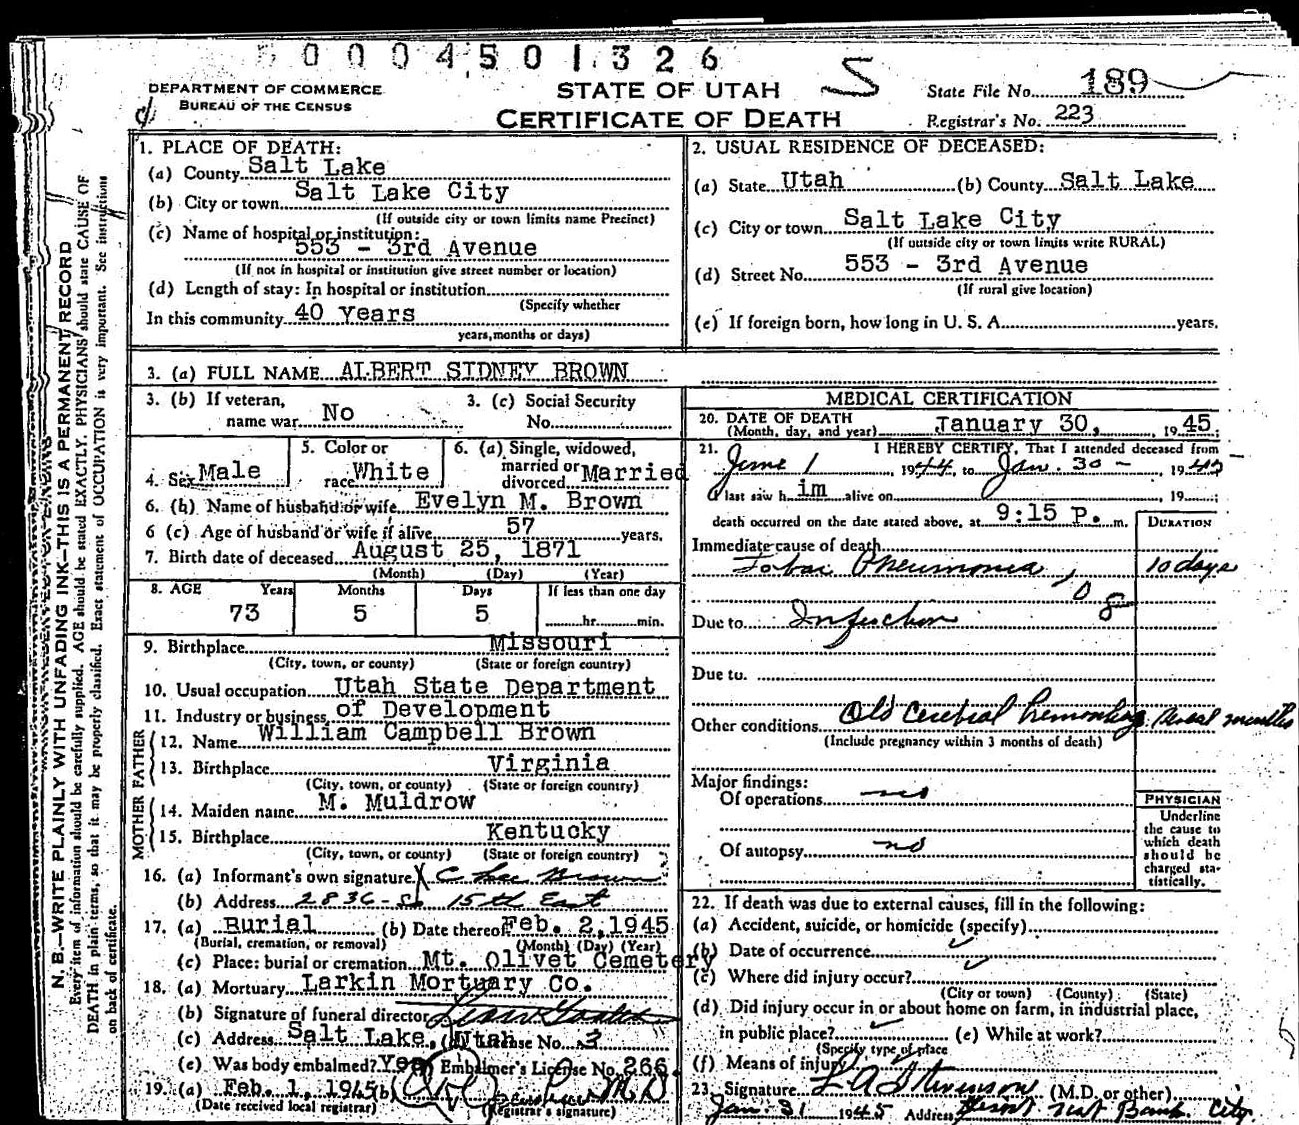 0 0 0 4 5 0 1 3 2 6
DEPARTMENT OF COMMERCE
BUREAU OF THE CENSUS
STATE OF UTAH
CERTIFICATE OF DEATH
State File No. 189
Registrar's No. 223
N. B.—WRITE PLAINLY WITH UNFADING INK—THIS IS A PERMANENT RECORD
Every item of information should be carefully supplied. AGE should be stated EXACTLY. PHYSICIANS should state CAUSE OF
DEATH in plain terms, so that it may be properly classified. Exact statement of OCCUPATION is very important. See instructions
on back of certificate.
1. PLACE OF DEATH:
(a) County Salt Lake
(b) City or town Salt Lake City
(If outside city or town limits name Precinct)
(c) Name of hospital or institution:
553 - 3rd Avenue
(If not in hospital or institution give street number or location)
(d) Length of stay: In hospital or institution
(Specify whether
In this community 40 Years
years, months or days)
2. USUAL RESIDENCE OF DECEASED:
(a) State Utah (b) County Salt Lake
(c) City or town Salt Lake City
(If outside city or town limits write RURAL)
(d) Street No. 553 - 3rd Avenue
(If rural give location)
(e) If foreign born, how long in U. S. A. years.
3. (a) FULL NAME ALBERT SIDNEY BROWN
3. (b) If veteran, name war No
3. (c) Social Security No.
4. Sex Male
5. Color or race White
6. (a) Single, widowed, married or divorced Married
6. (b) Name of husband or wife Evelyn M. Brown
6 (c) Age of husband or wife if alive 57 years.
7. Birth date of deceased August 25, 1871
(Month) (Day) (Year)
8. AGE Years Months Days If less than one day
73 5 5 hr. min.
9. Birthplace Missouri
(City, town, or county) (State or foreign country)
10. Usual occupation Utah State Department
11. Industry or business of Development
FATHER
12. Name William Campbell Brown
13. Birthplace Virginia
(City, town, or county) (State or foreign country)
MOTHER
14. Maiden name M. Muldrow
15. Birthplace Kentucky
(City, town, or county) (State or foreign country)
16. (a) Informant's own signature X C Lee Brown
(b) Address 2836 - So 15th East
17. (a) Burial (b) Date thereof Feb. 2, 1945
(Burial, cremation, or removal) (Month) (Day) (Year)
(c) Place: burial or cremation Mt. Olivet Cemetery
18. (a) Mortuary Larkin Mortuary Co.
(b) Signature of funeral director
(c) Address Salt Lake, Utah (d) License No. 3
(e) Was body embalmed? Yes Embalmer's License No. 266
19. (a) Feb. 1, 1945 (b) M.D
(Date received local registrar) (Registrar's signature)
MEDICAL CERTIFICATION
20. DATE OF DEATH
(Month, day, and year) January 30, 1945
21. I HEREBY CERTIFY, That I attended deceased from
June 1 1944 to Jan. 30 - 1945
I last saw him alive on , 19
death occurred on the date stated above, at 9:15 P. m.
DURATION
Immediate cause of death
Lobar Pneumonia, 10 days
108
Due to Infection
Due to.
Other conditions Old cerebral hemorrhage several months
(Include pregnancy within 3 months of death)
Major findings:
Of operations no
Of autopsy no
PHYSICIAN
Underline
the cause to
which death
should be
charged sta-
tistically.
22. If death was due to external causes, fill in the following:
(a) Accident, suicide, or homicide (specify)
(b) Date of occurrence
(c) Where did injury occur?
(City or town) (County) (State)
(d) Did injury occur in or about home on farm, in industrial place,
in public place? (e) While at work?
(Specify type of place
(f) Means of injury
23. Signature L A Stevenson (M.D. or other)
Jan. 31 1945 Address First Nat Bank City.